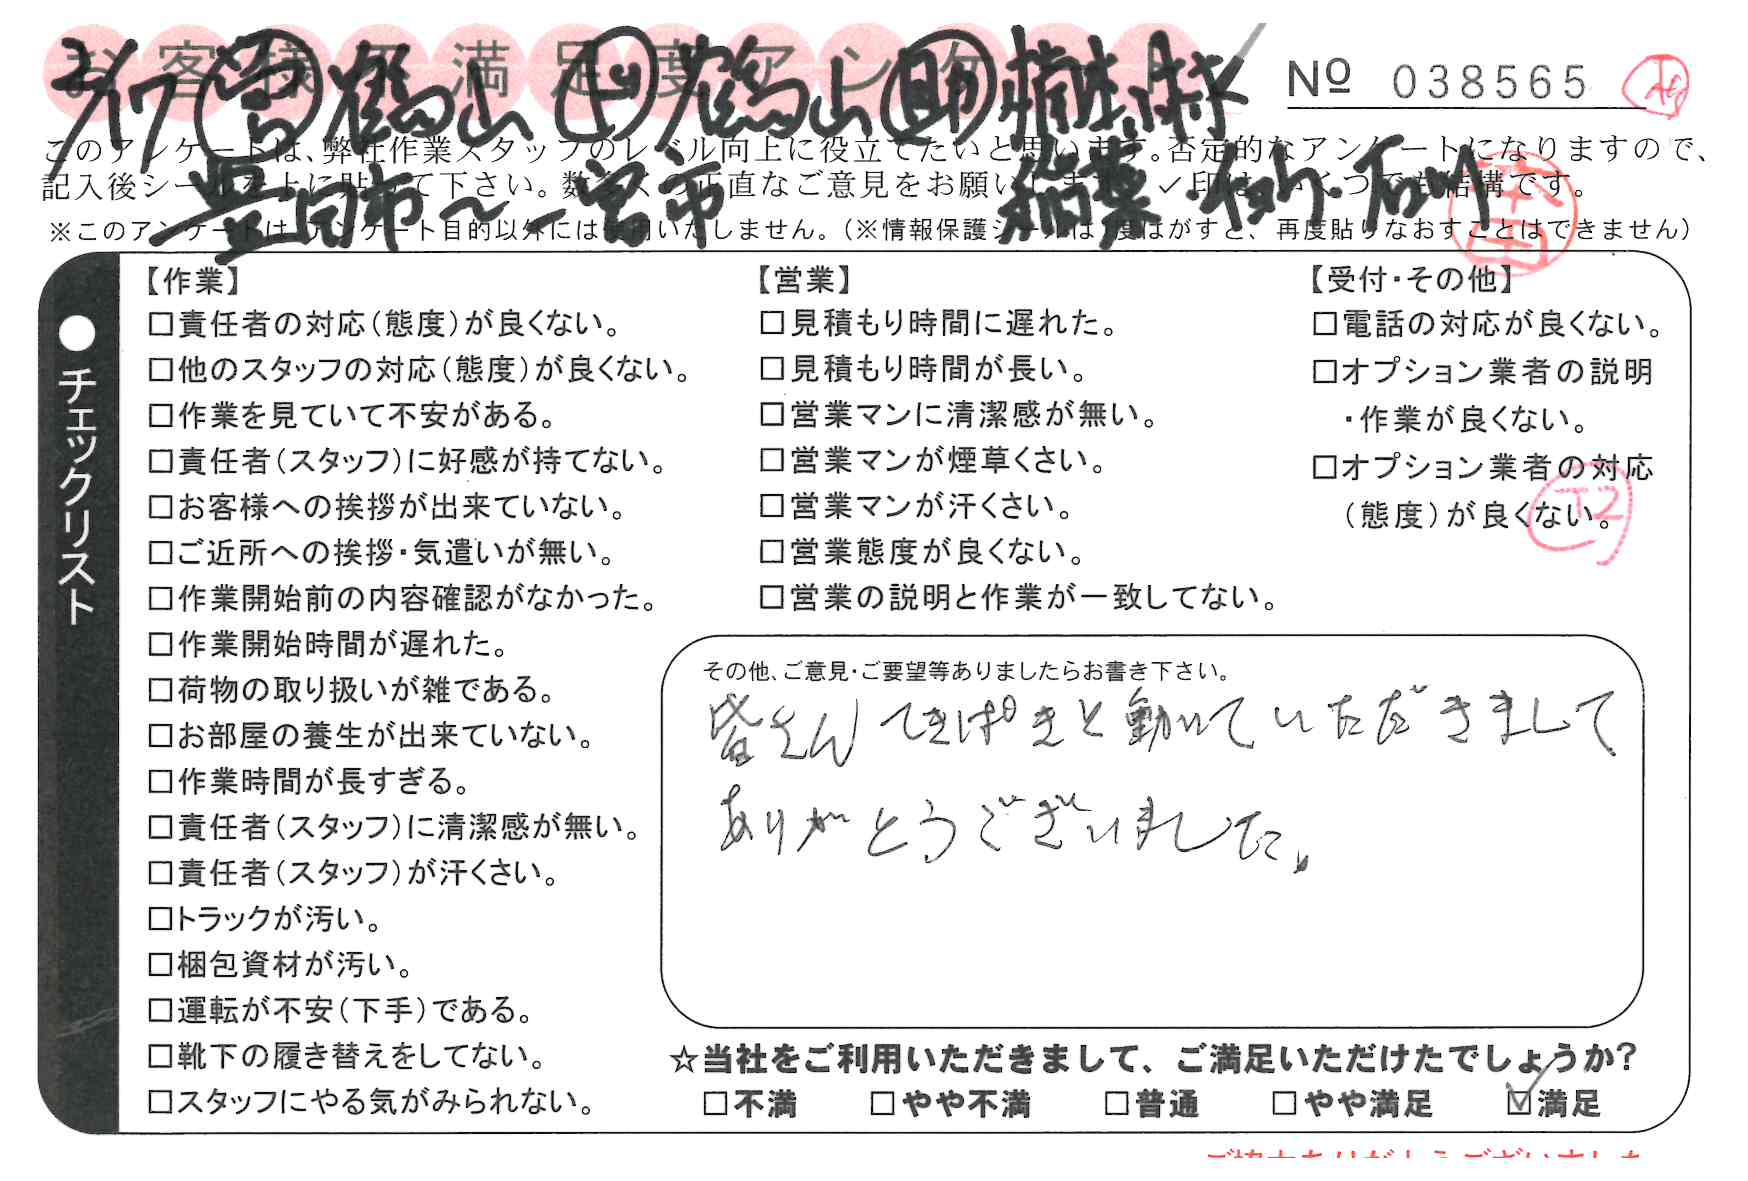 お客様不満足度アンケート
3/17 営 鶴山 鶴山 助
No 038565
このアンケートは、弊社作業スタッフのレベル向上に役立てたいと思います。否定的なアンケートになりますので、
記入後シールを上に貼って下さい。数多くの正直なご意見をお願いします。✓印は、いくつでも結構です。
豊田市〜一宮市 稲葉・石川
※このアンケートは、アンケート目的以外には使用いたしません。(※情報保護シールは1度はがすと、再度貼りなおすことはできません)
●チェックリスト
【作業】
□責任者の対応(態度)が良くない。
□他のスタッフの対応(態度)が良くない。
□作業を見ていて不安がある。
□責任者(スタッフ)に好感が持てない。
□お客様への挨拶が出来ていない。
□ご近所への挨拶・気遣いが無い。
□作業開始前の内容確認がなかった。
□作業開始時間が遅れた。
□荷物の取り扱いが雑である。
□お部屋の養生が出来ていない。
□作業時間が長すぎる。
□責任者(スタッフ)に清潔感が無い。
□責任者(スタッフ)が汗くさい。
□トラックが汚い。
□梱包資材が汚い。
□運転が不安(下手)である。
□靴下の履き替えをしてない。
□スタッフにやる気がみられない。
【営業】
□見積もり時間に遅れた。
□見積もり時間が長い。
□営業マンに清潔感が無い。
□営業マンが煙草くさい。
□営業マンが汗くさい。
□営業態度が良くない。
□営業の説明と作業が一致してない。
【受付・その他】
□電話の対応が良くない。
□オプション業者の説明
・作業が良くない。
□オプション業者の対応
(態度)が良くない。
その他、ご意見・ご要望等ありましたらお書き下さい。
皆さん てきぱきと動いていただきまして
ありがとうございました。
☆当社をご利用いただきまして、ご満足いただけたでしょうか?
□不満 □やや不満 □普通 □やや満足 ☑満足
ご協力ありがとうございました